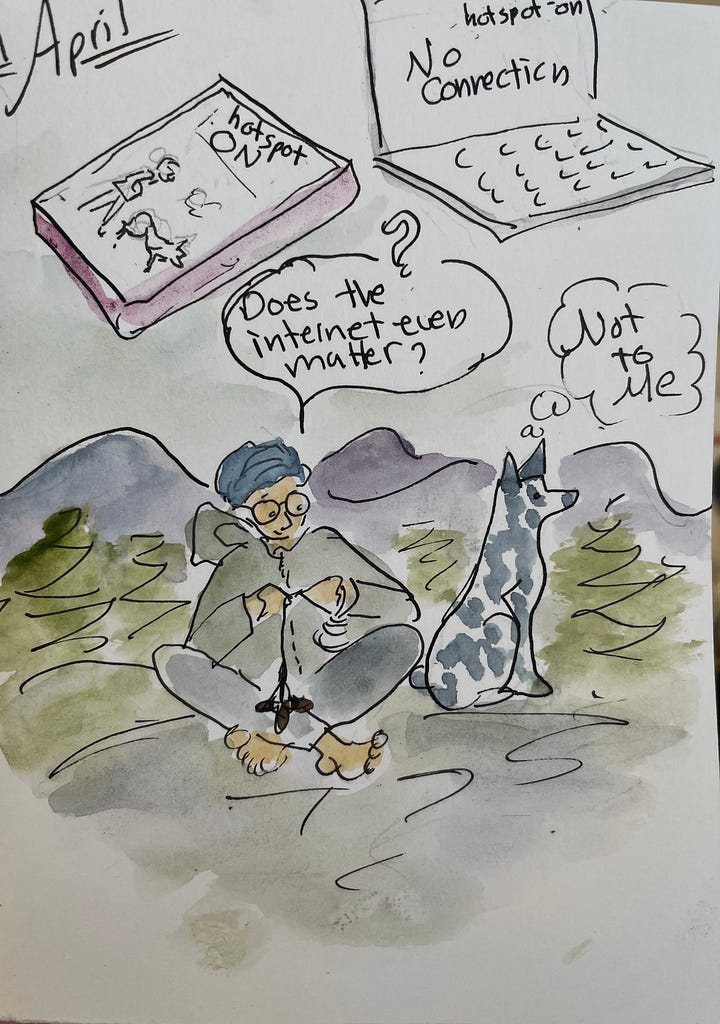 April
hotspot-on
No
Connection
hotspot
ON
?
Does the
internet even
matter?
Not
to
Me